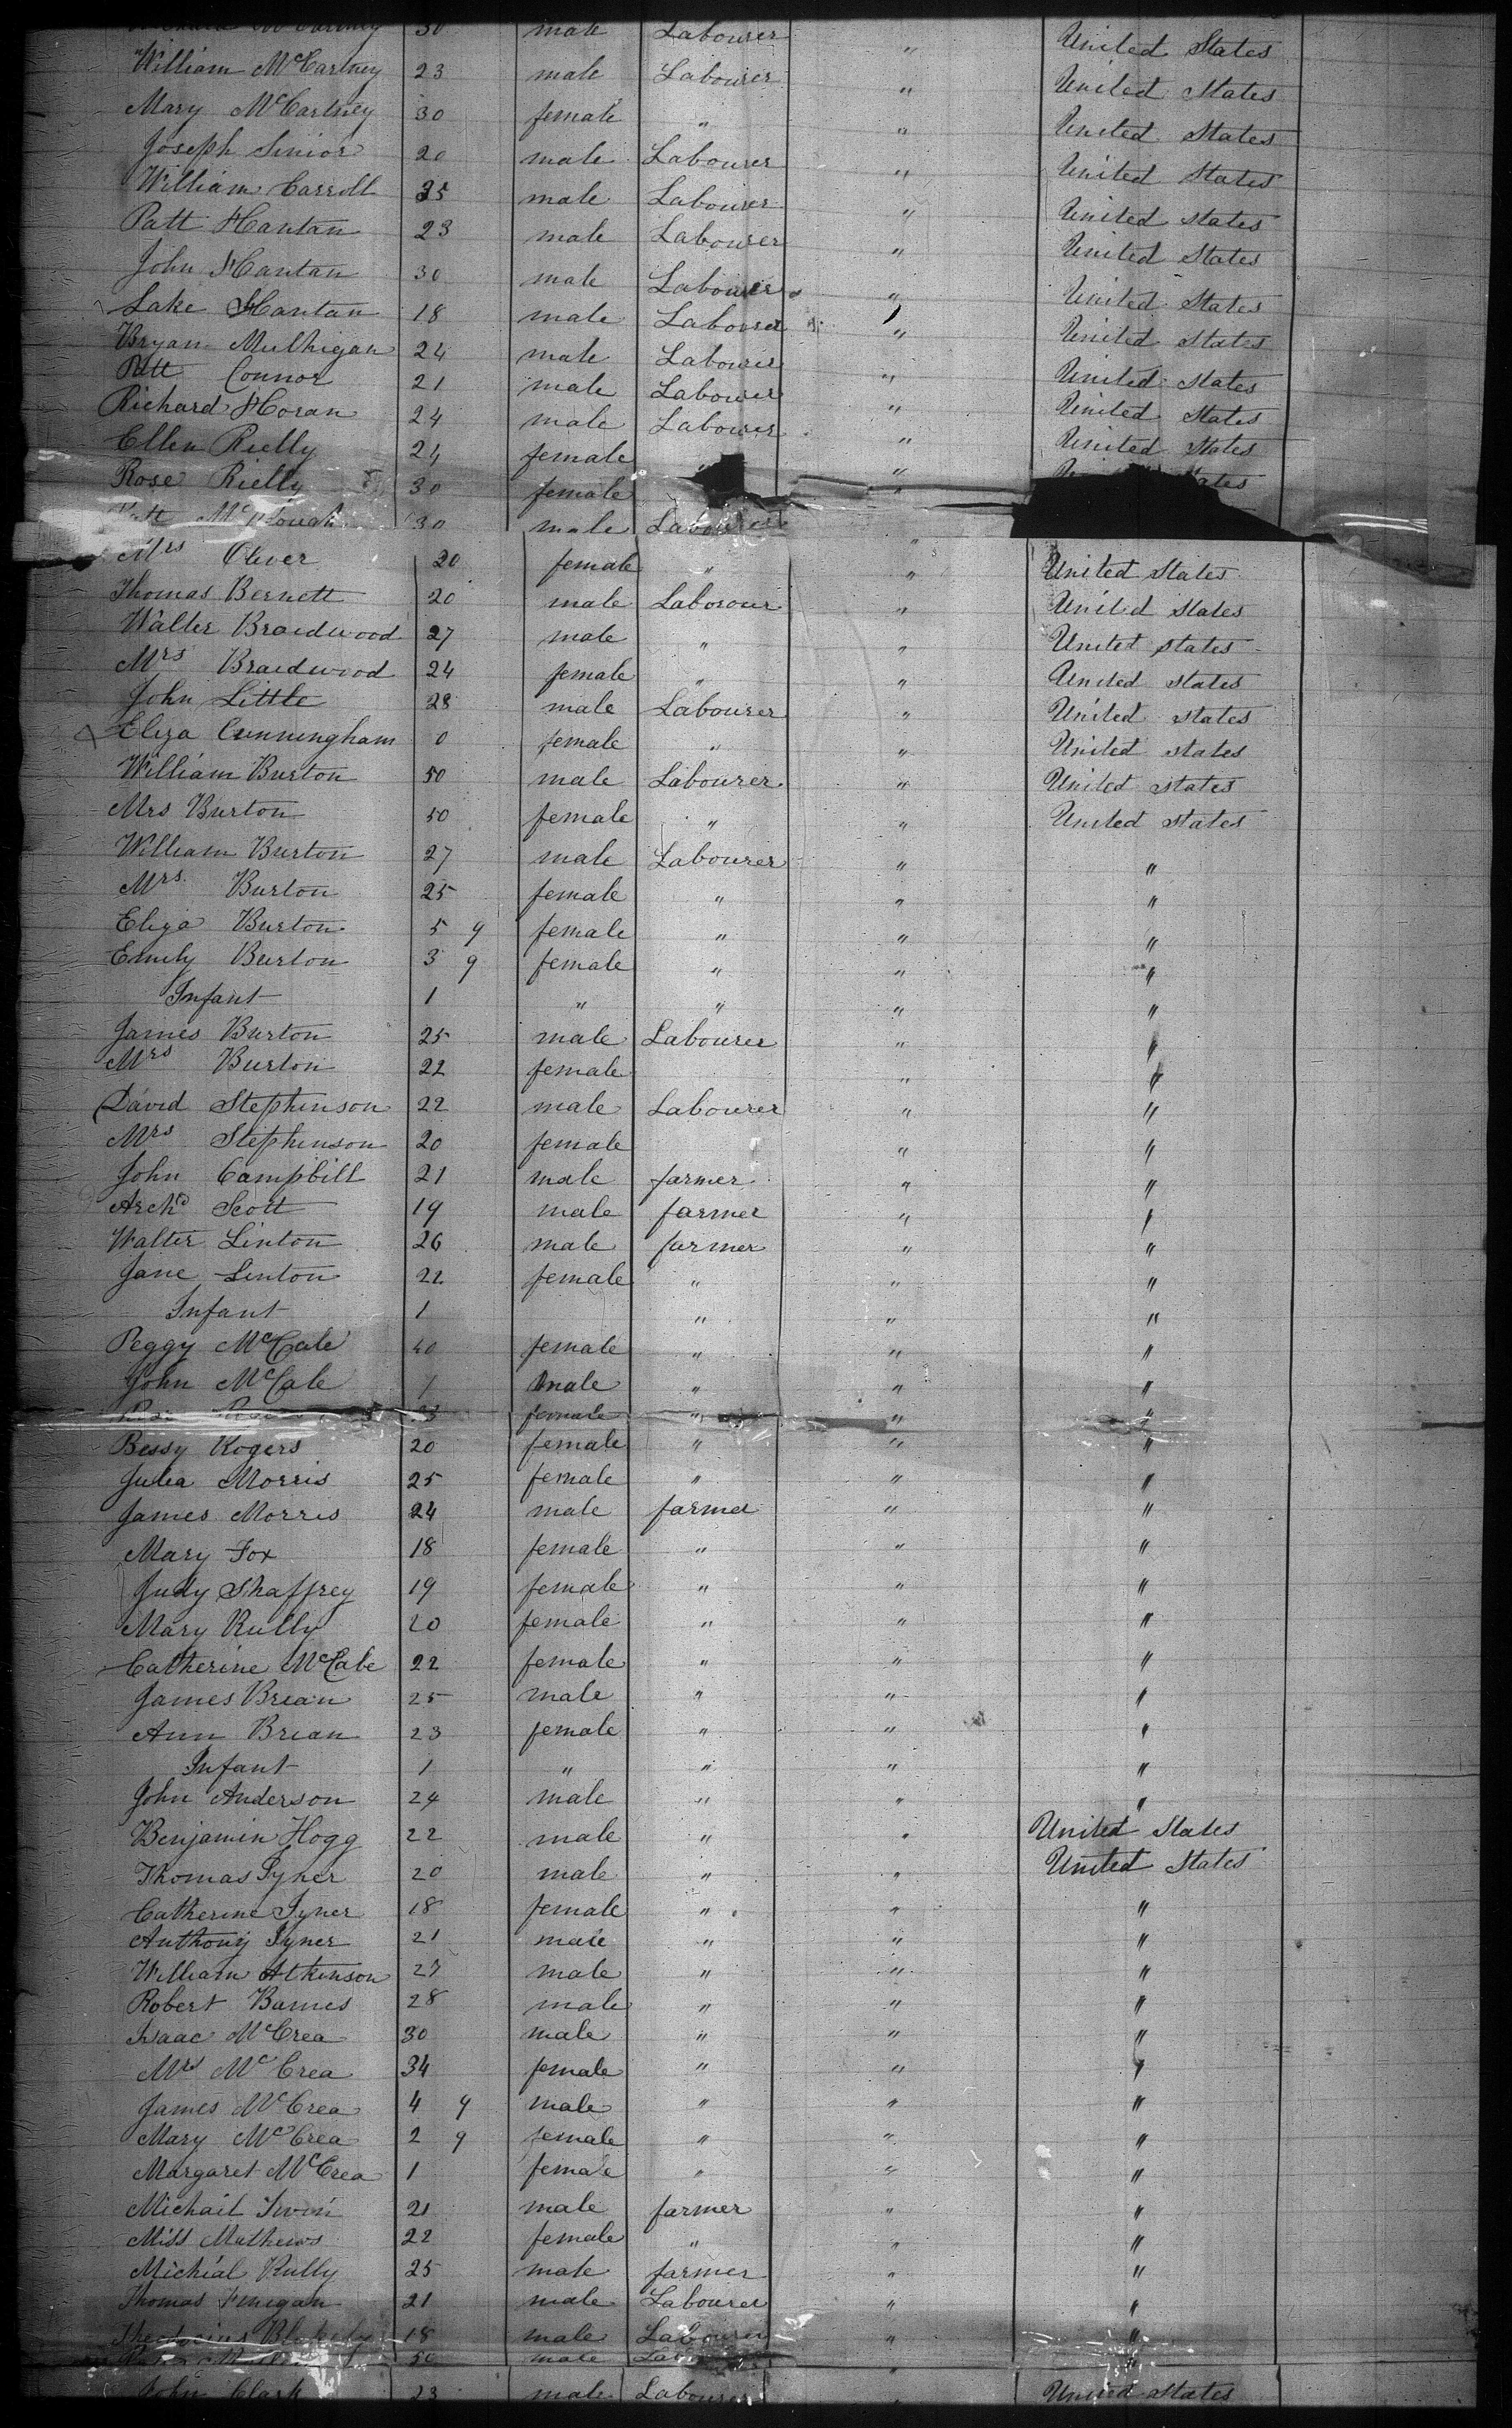 McCartney 30 male Labourer " United States
William McCartney 23 male Labourer " United States
Mary McCartney 30 female " " United States
Joseph Sinior 20 male Labourer " United States
William Carroll 35 male Labourer " United States
Patt Hantan 23 male Labourer " United States
John Hantan 30 male Labourer " United States
Lake Hantan 18 male Labourer " United States
Bryan Mulhigan 24 male Labourer " United States
Patt Connor 21 male Labourer " United States
Richard Horan 24 male Labourer " United States
Ellen Rielly 24 female " " United States
Rose Rielly 30 female "
Patt 30 male Labourer "
Mrs Oliver 20 female " " United States
Thomas Bernett 20 male Laborour " United States
Walter Braidwood 27 male " " Unitet States
Mrs Braedwood 24 female " " United States
John Little 28 male Labourer " United States
Eliza Cunningham 0 female " " United States
William Burton 50 male Labourer " United States
Mrs Burton 50 female " " United States
William Burton 27 male Labourer " "
Mrs. Burton 25 female " " "
Eliza Burton 5 9 female " " "
Emily Burton 3 9 female " " "
Infant 1 " " " "
James Burton 25 male Labourer " "
Mrs Burton 22 female " "
David Stephinson 22 male Labourer " "
Mrs Stephinson 20 female " "
John Campbill 21 male farmer " "
Archd Scott 19 male farmer " "
Walter Linton 26 male farmer " "
Jane Linton 22 female " " "
Infant 1 " " "
Peggy McCale 40 female " " "
John McCale 1 male " " "
female " " "
Bessy Rogers 20 female " " "
Julia Morris 25 female " " "
James Morris 24 male farmer " "
Mary Fox 18 female " " "
Judy Shaffrey 19 female " " "
Mary Rully 20 female " " "
Catherine McCabe 22 female " " "
James Brean 25 male " " "
Ann Brian 23 female " " "
Infant 1 " " " "
John Anderson 24 male " " "
Benjamin Hogg 22 male " " United States
Thomas Tyner 20 male " " United States
Catherine Tyner 18 female " " "
Anthony Tyner 21 male " " "
William Atkinson 27 male " " "
Robert Barnes 28 male " " "
Isaac McCrea 30 male " " "
Mrs McCrea 34 female " " "
James McCrea 4 9 male " " "
Mary McCrea 2 9 female " " "
Margaret McCrea 1 female " " "
Michail Irvin 21 male farmer " "
Miss Mathews 22 female " " "
Michial Rully 25 male farmer " "
Thomas Finigan 21 male Labourer " "
Blakely 18 male Labourer " "
50 male "
John Clark 23 male Labourer " United States